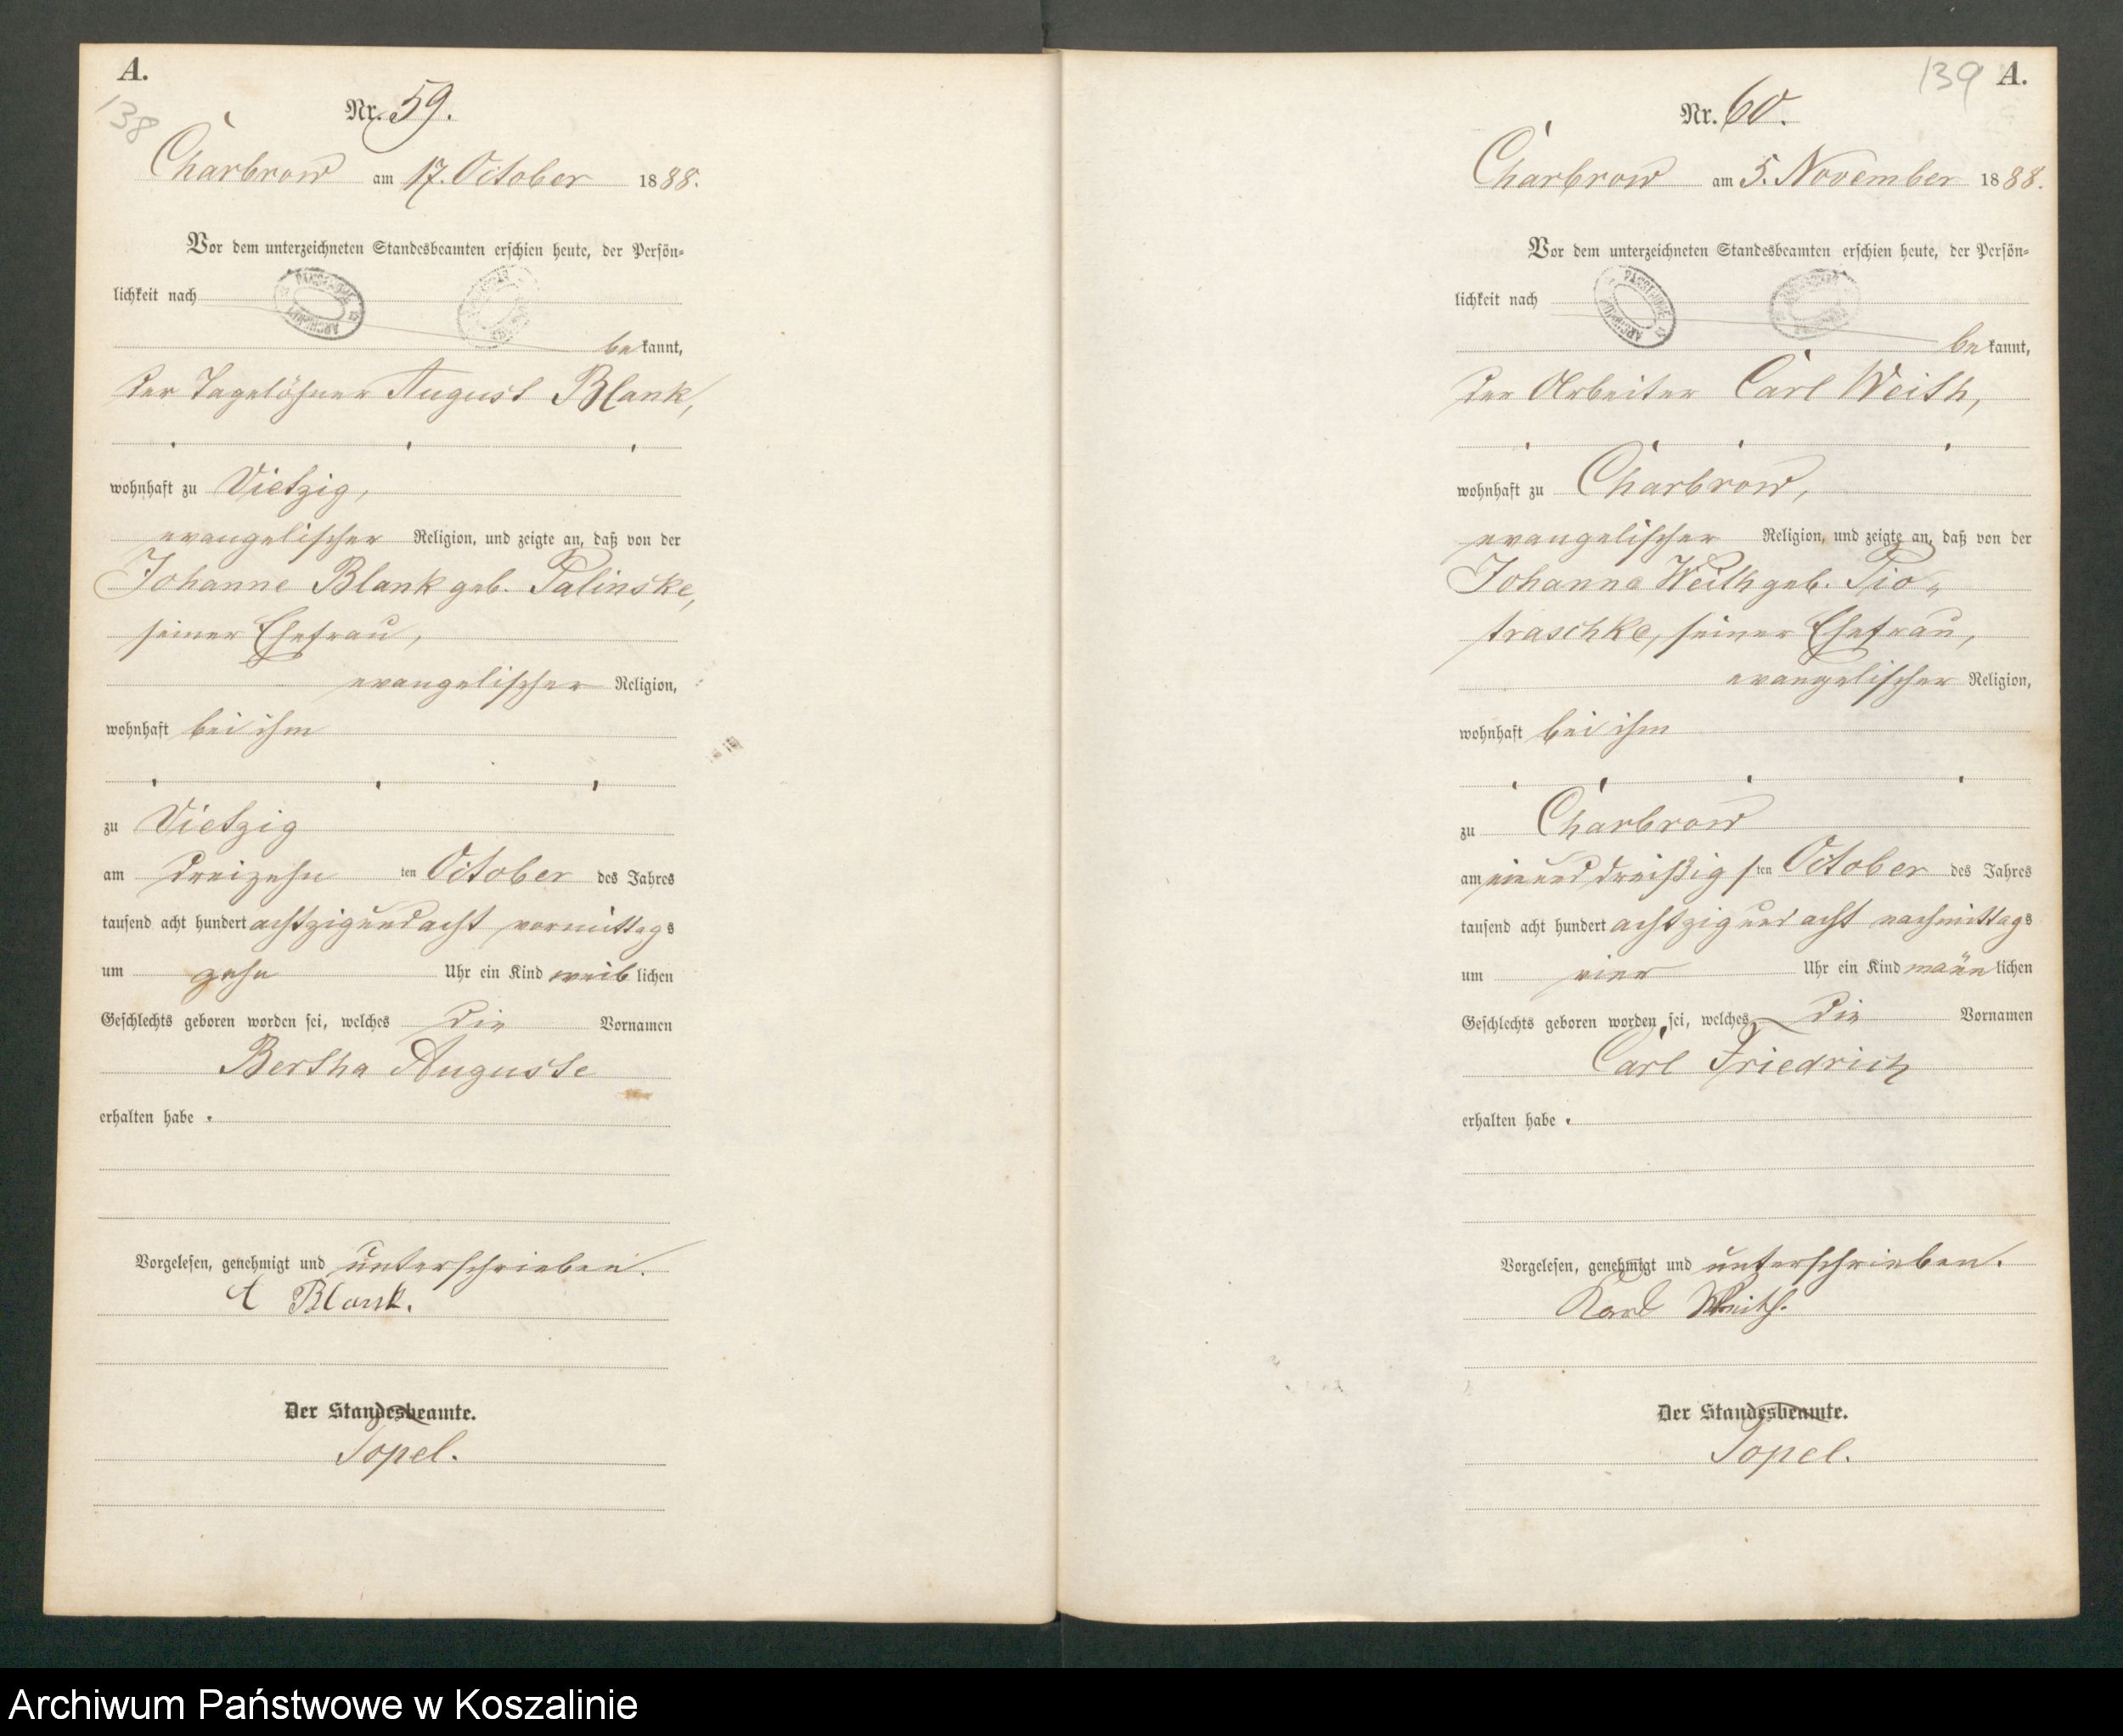 A.
138
Nr. 59.
Charbrow am 17. October 1888.
Vor dem unterzeichneten Standesbeamten erschien heute, der Persön-
lichkeit nach
bekannt,
der Tagelöhner August Blank,
wohnhaft zu Vietzig,
evangelischer Religion, und zeigte an, daß von der
Johanne Blank geb. Palinske,
seiner Ehefrau,
evangelischer Religion,
wohnhaft bei ihm
zu Vietzig
am dreizehn ten October des Jahres
tausend acht hundert achtzig und acht vormittags
um zehn Uhr ein Kind weiblichen
Geschlechts geboren worden sei, welches die Vornamen
Bertha Auguste
erhalten habe.
Vorgelesen, genehmigt und unterschrieben.
A Blank.
Der Standesbeamte.
Topel.
139 A.
Nr. 60.
Charbrow am 5. November 1888.
Vor dem unterzeichneten Standesbeamten erschien heute, der Persön-
lichkeit nach
bekannt,
der Arbeiter Carl Weith,
wohnhaft zu Charbrow,
evangelischer Religion, und zeigte an, daß von der
Johanna Weith geb. Pio-
traschke, seiner Ehefrau,
evangelischer Religion,
wohnhaft bei ihm
zu Charbrow
am einunddreißigsten October des Jahres
tausend acht hundert achtzig und acht nachmittags
um vier Uhr ein Kind männlichen
Geschlechts geboren worden sei, welches die Vornamen
Carl Friedrich
erhalten habe.
Vorgelesen, genehmigt und unterschrieben.
Karl Weith.
Der Standesbeamte.
Topel.
Archiwum Państwowe w Koszalinie